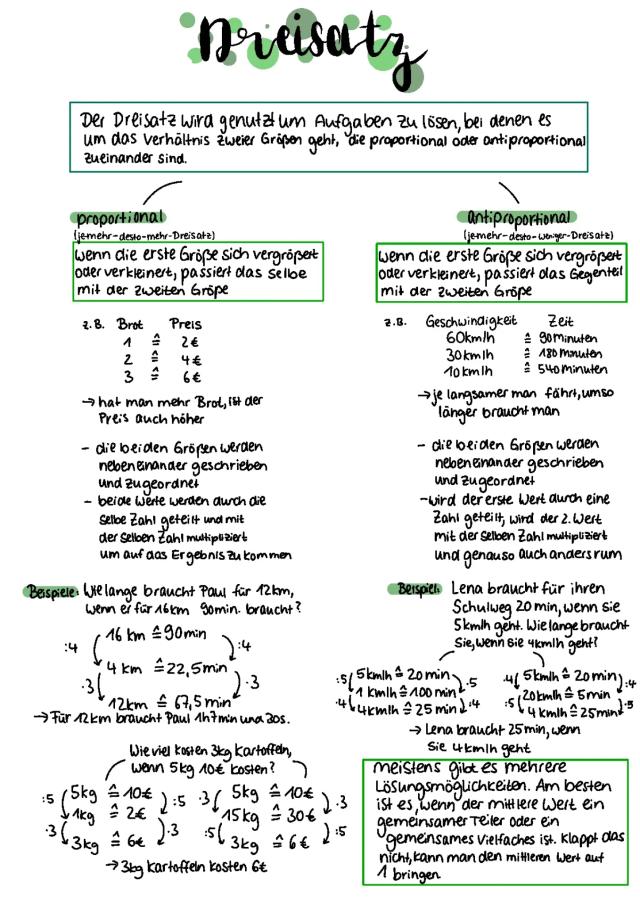 Dreisatz
Der Dreisatz wird genutzt um Aufgaben zu lösen, bei denen es
um das Verhältnis zweier Größen geht, die proportional oder antiproportional
zueinander sind.
proportional
(je-mehr-desto-mehr-Dreisatz)
wenn die erste Größe sich vergrößert
oder verkleinert, passiert das selbe
mit der zweiten Größe
z.B. Brot Preis
1 ≙ 2€
2 ≙ 4€
3 ≙ 6€
→ hat man mehr Brot, ist der
Preis auch höher
- die beiden Größen werden
nebeneinander geschrieben
und zugeordnet
- beide Werte werden durch die
selbe Zahl geteilt und mit
der selben Zahl multipliziert
um auf das Ergebnis zu kommen
Beispiele: Wie lange braucht Paul für 12km,
wenn er für 16km 90min. braucht?
:4 16 km ≙ 90min :4
4 km ≙ 22,5min
·3 12km ≙ 67,5min ·3
→ Für 12km braucht Paul 1h 7min und 30s.
Wie viel kosten 3kg Kartoffeln,
wenn 5kg 10€ kosten?
:5 5kg ≙ 10€ :5
1kg ≙ 2€
·3 3kg ≙ 6€ ·3
·3 5kg ≙ 10€ ·3
15kg ≙ 30€
:5 3kg ≙ 6€ :5
→ 3kg Kartoffeln kosten 6€
antiproportional
(je-mehr-desto-weniger-Dreisatz)
wenn die erste Größe sich vergrößert
oder verkleinert, passiert das Gegenteil
mit der zweiten Größe
z.B. Geschwindigkeit Zeit
60km/h ≙ 90minuten
30km/h ≙ 180minuten
10km/h ≙ 540minuten
→ je langsamer man fährt, umso
länger braucht man
- die beiden Größen werden
nebeneinander geschrieben
und zugeordnet
- wird der erste Wert durch eine
Zahl geteilt, wird der 2. Wert
mit der selben Zahl multipliziert
und genauso auch andersrum
Beispiel: Lena braucht für ihren
Schulweg 20 min, wenn sie
5km/h geht. Wie lange braucht
sie, wenn sie 4km/h geht?
:5 5km/h ≙ 20 min ·5
1 km/h ≙ 100 min
·4 4km/h ≙ 25 min :4
·4 5km/h ≙ 20min :4
20km/h ≙ 5min
:5 4 km/h ≙ 25min ·5
→ Lena braucht 25min, wenn
sie 4km/h geht
meistens gibt es mehrere
Lösungsmöglichkeiten. Am besten
ist es, wenn der mittlere Wert ein
gemeinsamer Teiler oder ein
gemeinsames Vielfaches ist. Klappt das
nicht, kann man den mittleren Wert auf
1 bringen.